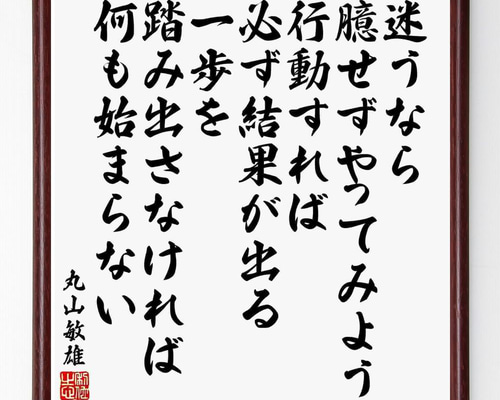 迷うなら
臆せずやってみよう
行動すれば
必ず結果が出る
一歩を
踏み出さなければ
何も始まらない
丸山敏雄